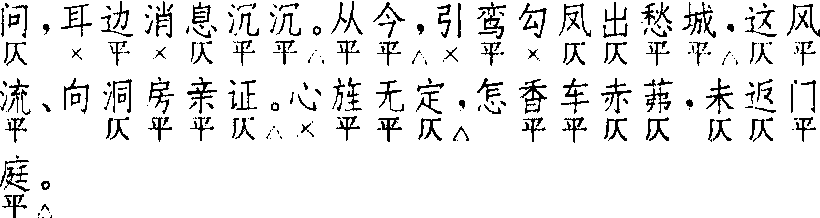 问，耳边消息沉沉。从今，引鸾勾凤出愁城，这风
仄 × 平 × 仄 平 平 △ 平 平 △ × 平 × 仄 仄 平 平 △ 仄 平
流、向洞房亲证。心旌无定，怎香车赤茀，未返门
平 仄 平 平 仄 △ × 平 平 仄 △ 平 平 仄 仄 仄 仄 平
庭。
平 △